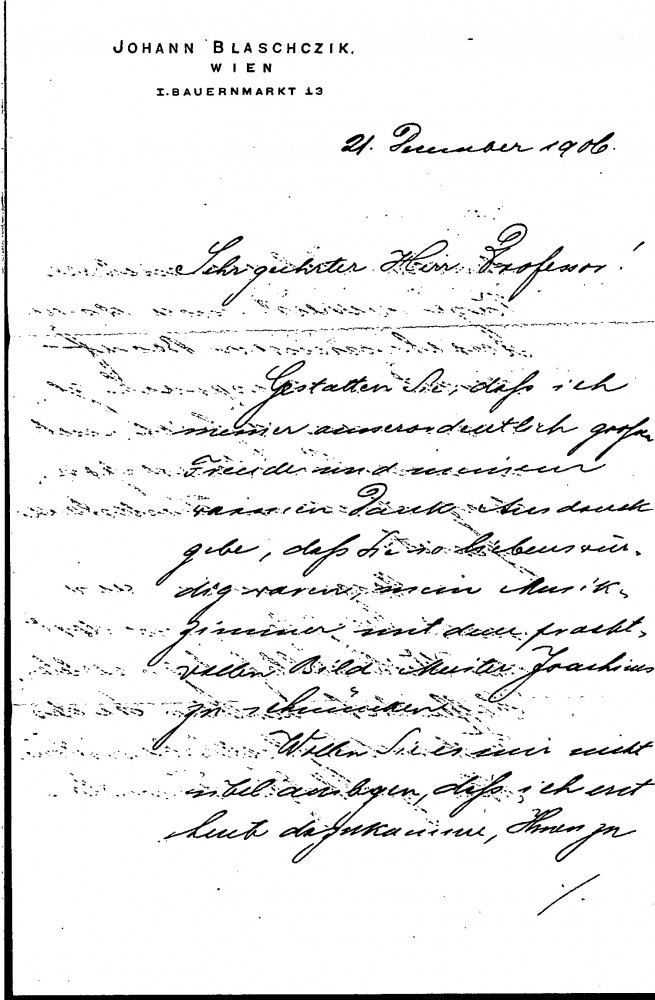 JOHANN BLASCHCZIK,
WIEN
I. BAUERNMARKT 13
21. Dezember 1906.
Sehr geehrter Herr Professor!
Gestatten Sie, daß ich
meiner ausserordentlich großen
Freude und meinem
warmen Dank Ausdruck
gebe, daß Sie so liebenswür-
dig waren, mein Musik-
zimmer mit dem pracht-
vollen Bild Meister Joachims
zu schmücken.
Wollen Sie es mir nicht
übel auslegen, daß ich erst
heute dazukomme, Ihnen zu
./.